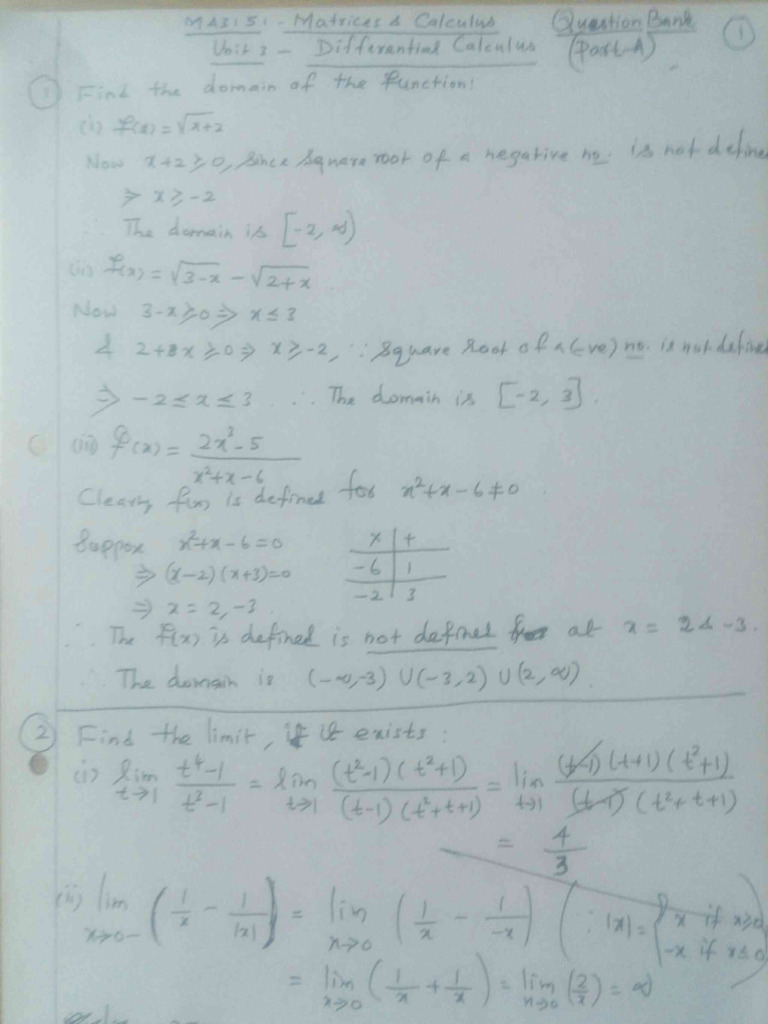 MA3151 - Matrices & Calculus Question Bank ①
Unit 3 - Differential Calculus (Part-A)
① Find the domain of the function:
(i) f(x) = √x+2
Now x+2 ≥ 0, Since square root of a negative no. is not define
⇒ x ≥ -2
∴ The domain is [-2, ∞)
(ii) f(x) = √3-x - √2+x
Now 3-x ≥ 0 ⇒ x ≤ 3
& 2+x ≥ 0 ⇒ x ≥ -2, ∵ Square Root of a (-ve) no. is not define
⇒ -2 ≤ x ≤ 3 ∴ The domain is [-2, 3].
(iii) f(x) = 2x³-5 / x²+x-6
Clearly f(x) is defined for x²+x-6 ≠ 0
Suppose x²+x-6 = 0 x | +
⇒ (x-2)(x+3)=0 -6 | 1
⇒ x = 2, -3. -2 | 3
∴ The f(x) is defined is not defined at x = 2 & -3.
∴ The domain is (-∞,-3) ∪ (-3,2) ∪ (2,∞)
② Find the limit, if it exists:
(i) lim t→1 t⁴-1 / t³-1 = lim t→1 (t²-1)(t²+1) / (t-1)(t²+t+1) = lim t→1 (t-1)(t+1)(t²+1) / (t-1)(t²+t+1)
= 4/3
(ii) lim x→0- (1/x - 1/|x|) = lim x→0 (1/x - 1/-x) (∵ |x| = { x if x≥0 -x if x≤0 )
= lim x→0 (1/x + 1/x) = lim x→0 (2/x) = ∞